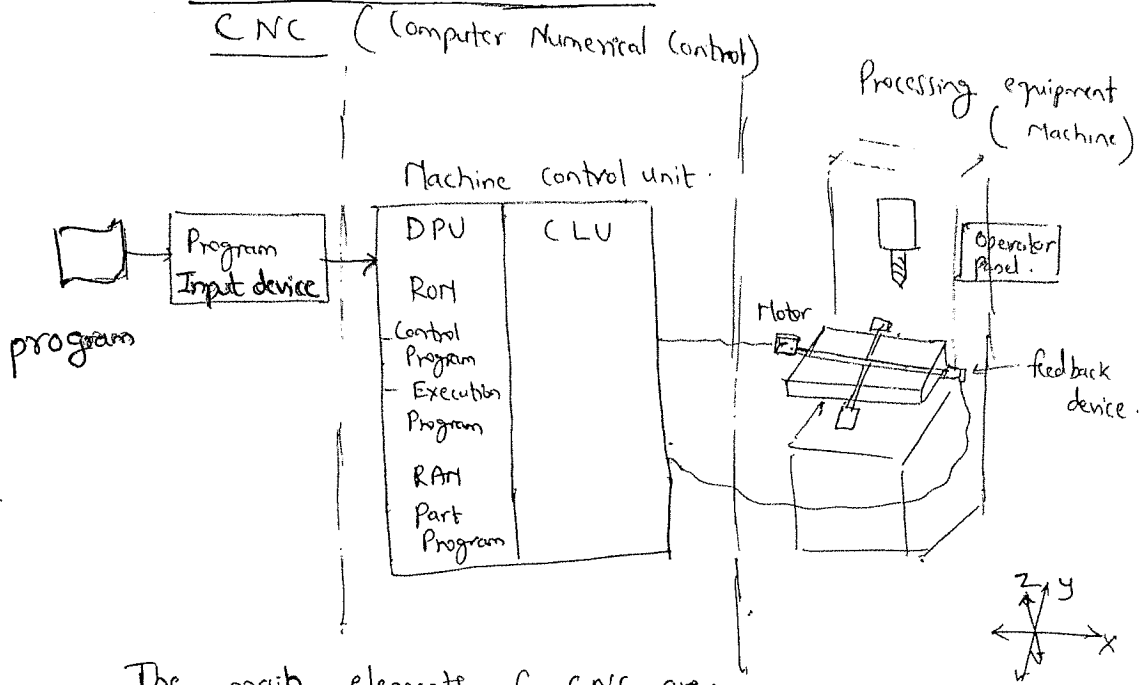 CNC (Computer Numerical Control)
Processing equipment
(Machine)
Machine control unit.
DPU
CLU
Program
Input device
program
ROM
-Control
Program
- Execution
Program
RAM
Part
Program
Operator
Panel.
Motor
feedback
device.
Z
y
X
The main elements of CNC are: